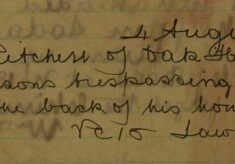 4 Augu
Pitchers of Oak H
sons trespassing
he back of his hou
PC 10 Law